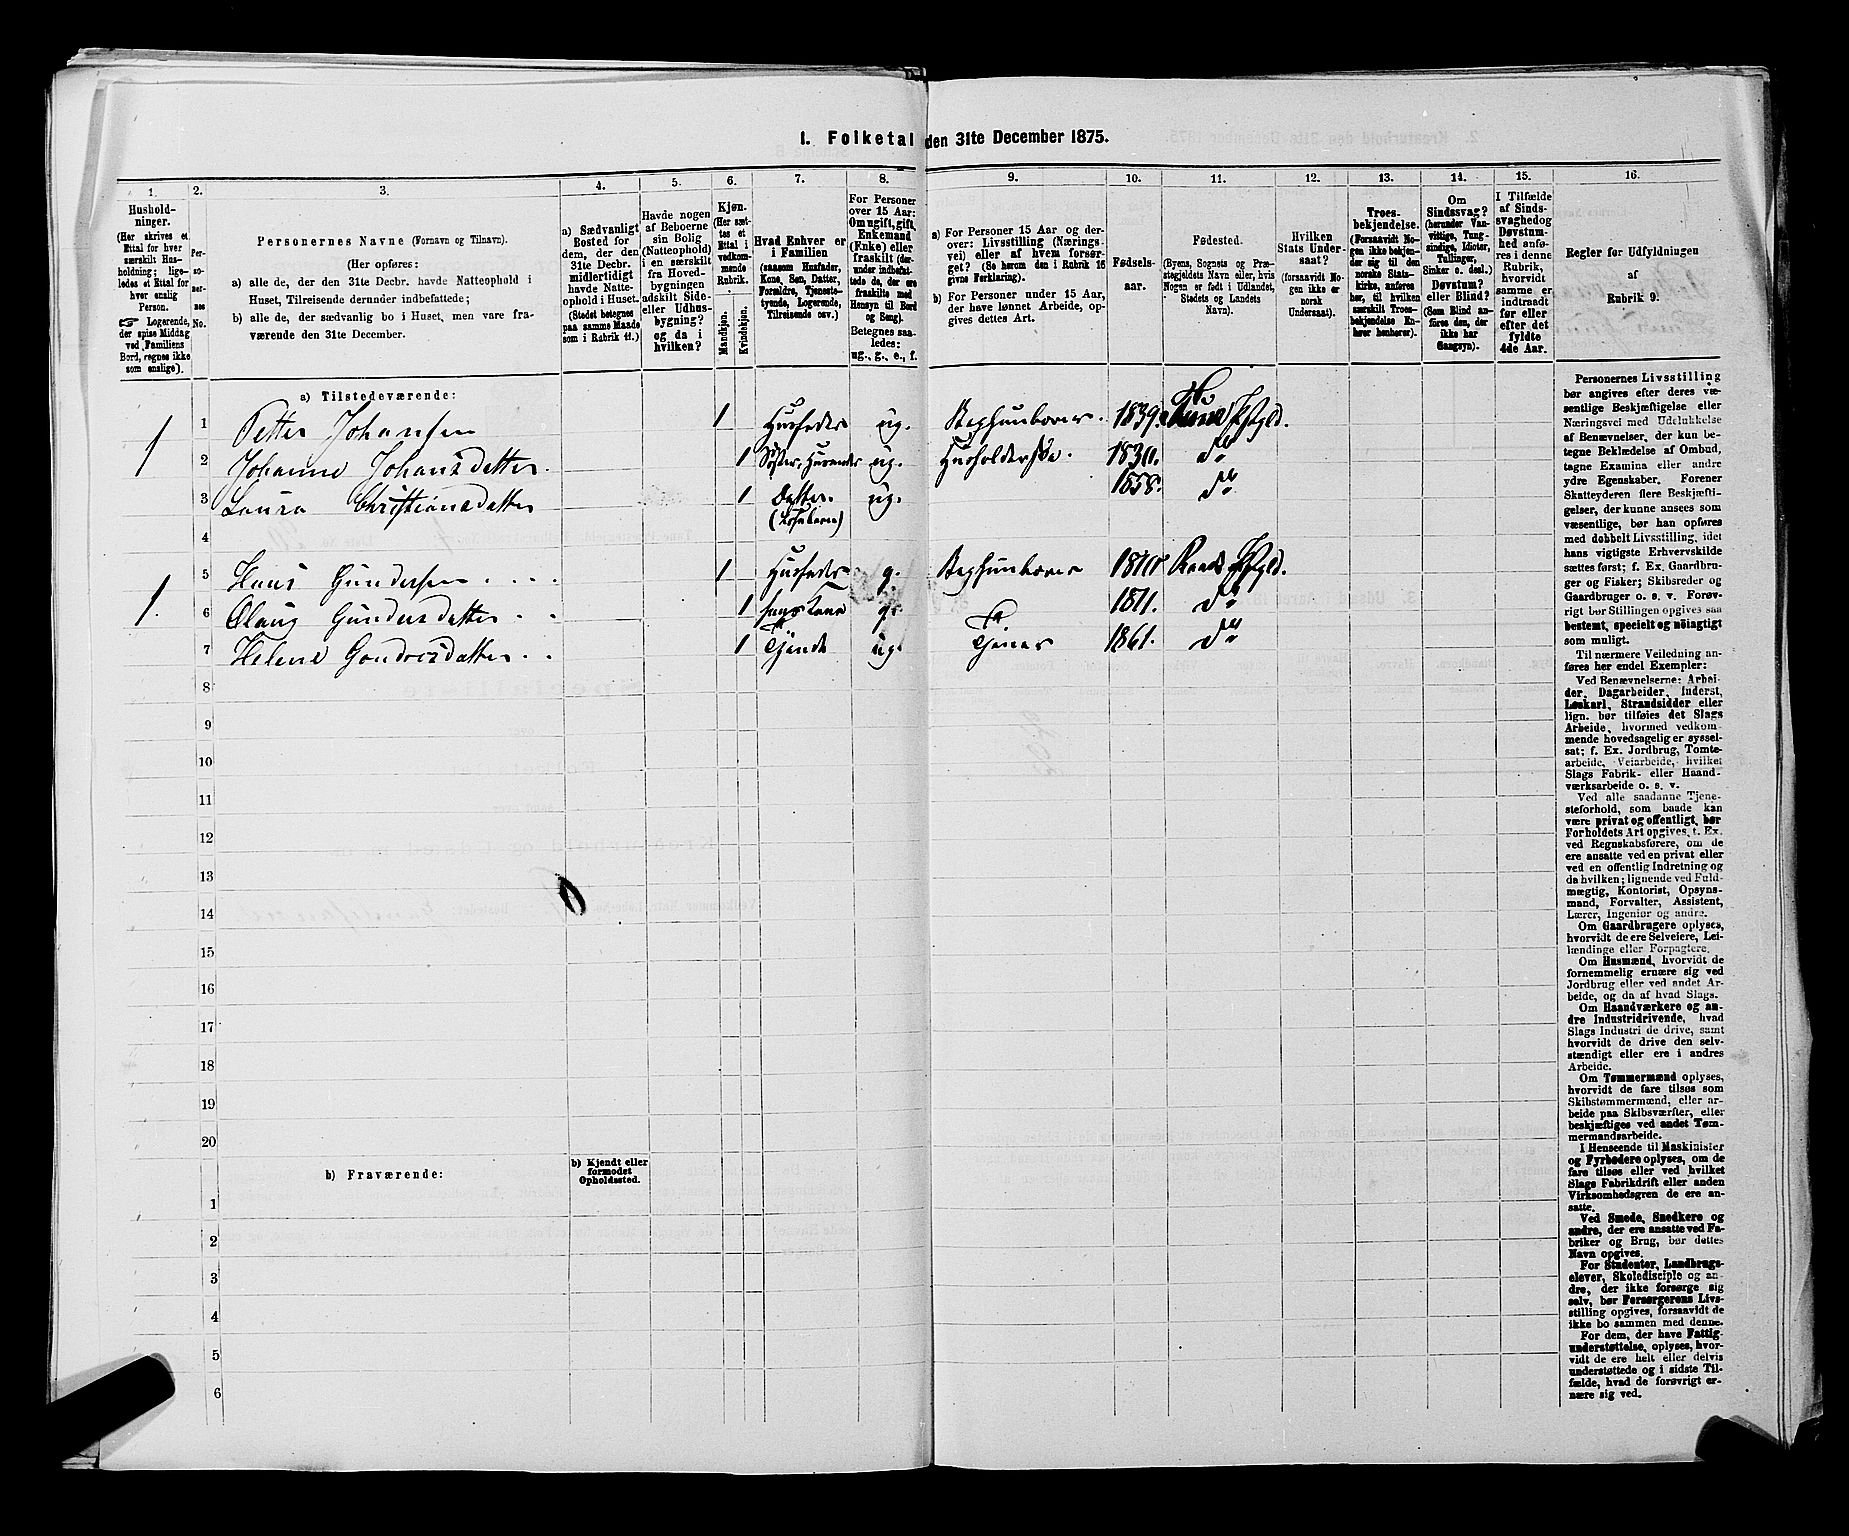 1. Folketal den 31te December 1875.
1. 2. 3. 4. 5. 6. 7. 8. 9. 10. 11. 12. 13. 14. 15. 16.
Hushold-
ninger.
(Her skrives et
Ettal for hver
særskilt Hus-
holdning; lige-
ledes et Ettal for
hver enslig
Person.
☞ Logerende,
der spise Middag
ved Familiens
Bord, regnes ikke
som enslige).
Per-
so-
ner-
nes
No.
Personernes Navne (Fornavn og Tilnavn).
(Her opføres:
a) alle de, der den 31te Decbr. havde Natteophold i
Huset, Tilreisende derunder indbefattede;
b) alle de, der sædvanlig bo i Huset, men vare fra-
værende den 31te December.
a) Sædvanligt
Bosted for
dem, der den
31te Decbr.
midlertidigt
havde Natte-
ophold i Huset.
(Stedet betegnes
paa samme Maade
som i Rubrik 11.)
Havde nogen
af Beboerne
sin Bolig
(Natteophold)
i en særskilt
fra Hoved-
bygningen
adskilt Side-
eller Udhus-
bygning?
og da i
hvilken?
Kjøn.
(Her sæt-
tes et
Ettal i
vedkom-
mende
Rubrik.)
Mandkjøn.
Kvindekjøn.
Hvad Enhver er
i Familien
(saasom Husfader,
Kone, Søn, Datter,
Forældre, Tjeneste-
tyende, Logerende,
Tilreisende osv.)
For Personer
over 15 Aar:
Om ugift, gift,
Enkemand
(Enke) eller
fraskilt (der-
under indbefat-
tede de, der ere
fraskilte med
Hensyn til Bord
og Seng).
Betegnes saa-
ledes:
ug., g., e., f.
a) For Personer 15 Aar og der-
over: Livsstilling (Nærings-
vei) eller af hvem forsør-
get? (Se herom den i Rubrik 16
givne Forklaring).
b) For Personer under 15 Aar,
der have lønnet Arbeide, op-
gives dettes Art.
Fødsels-
aar.
Fødested.
(Byens, Sognets og Præ-
stegjeldets Navn eller, hvis
Nogen er født i Udlandet,
Stedets og Landets
Navn).
Hvilken
Stats Under-
saat?
(forsaavidt No-
gen ikke er
norsk
Undersaat).
Troes-
bekjendelse.
(Forsaavidt No-
gen ikke bekjen-
der sig til den
norske Stats-
kirke, anføres
her, til hvilken
særskilt Troes-
bekjendelse En-
hver henhører).
Om
Sindssvag?
(herunder Van-
vittige, Tung-
sindige, Idioter,
Tullinger,
Sinker o. desl.)
Døvstum?
eller Blind?
(Som Blind an-
føres den, der
ikke har
Gangsyn).
I Tilfælde
af Sinds-
svaghed og
Døvstum-
hed anfø-
res i denne
Rubrik,
hvorvidt
samme er
indtraadt
før eller
efter det
fyldte
4de Aar.
Regler for Udfyldningen
af
Rubrik 9.
a) Tilstedeværende:
1 1 Petter Johansen 1 Husfader ug. 1839.
2 Johanne Johansdatter. 1 ug. Husholderske. do
3 Laura Christiansdatter 1 Datter. ug. 1858. do
4
1. 5 Hans Gundersen 1 Husfader g.
6 Olaug Gundersdatter 1 hans Kone g. 1811. do
7 Helene 1 Tjende ug. Tjener 1861. do
8
9
10
11
12
13
14
15
16
17
18
19
20
b) Fraværende:
b) Kjendt eller
formodet
Opholdssted.
1
2
3
4
5
6
Personernes Livsstilling
bør angives efter deres væ-
sentlige Beskjæftigelse eller
Næringsvei med Udelukkelse
af Benævnelser, der kun be-
tegne Beklædelse af Ombud,
tagne Examina eller andre
ydre Egenskaber. Forener
Skatteyderen flere Beskjæfti-
gelser, der kunne ansees som
væsentlige, bør han opføres
med dobbelt Livsstilling, idet
hans vigtigste Erhvervskilde
sættes først; f. Ex. Gaardbru-
ger og Fisker; Skibsreder og
Gaardbruger o. s. v. Forøv-
rigt bør Stillingen opgives saa
bestemt, specielt og nöiagtigt
som muligt.
Til nærmere Veiledning an-
føres her endel Exempler:
Ved Benævnelserne: Arbei-
der, Dagarbeider, Inderst,
Løskarl, Strandsidder eller
lign. bør tilføies det Slags
Arbeide, hvormed vedkom-
mende hovedsagelig er syssel-
sat; f. Ex. Jordbrug, Tomte-
arbeide, Veiarbeide, hvilket
Slags Fabrik- eller Haand-
værksarbeide o. s. v.
Ved alle saadanne Tjene-
steforhold, som baade kan
være privat og offentligt, bør
Forholdets Art opgives, t. Ex.
ved Regnskabsførere, om de
ere ansatte ved en privat eller
ved en offentlig Indretning og
da hvilken; lignende ved Fuld-
mægtig, Kontorist, Opsyns-
mand, Forvalter, Assistent,
Lærer, Ingeniør og andre.
Om Gaardbrugere oplyses,
hvorvidt de ere Selveiere, Lei-
lændinge eller Forpagtere.
Om Husmænd, hvorvidt de
fornemmelig ernære sig ved
Jordbrug eller ved andet Ar-
beide, og da af hvad Slags.
Om Haandværkere og an-
dre Industridrivende, hvad
Slags Industri de drive, samt
hvorvidt de drive den selv-
stændigt eller ere i andres
Arbeide.
Om Tømmermænd oplyses,
hvorvidt de fare tilsøs som
Skibstømmermænd, eller ar-
beide paa Skibsværfter, eller
beskjæftiges ved andet Tøm-
mermandsarbeide.
I Henseende til Maskinister
og Fyrbødere oplyses, om de
fare tilsøs eller ved hvilket
Slags Fabrikdrift eller anden
Virksomhedsgren de ere an-
satte.
Ved Smede, Snedkere og
andre, der ere ansatte ved Fa-
briker og Brug, bør dettes
Navn opgives.
For Studenter, Landbrugs-
elever, Skoledisciple og an-
dre, der ikke forsørge sig
selv, bør Forsørgerens Livs-
stilling opgives, forsaavidt de
ikke bo sammen med denne.
For dem, der have Fattig-
understøttelse, oplyses, hvor-
vidt de ere helt eller delvis
understøttede og i sidste Til-
fælde, hvad de forøvrigt er-
nære sig ved.